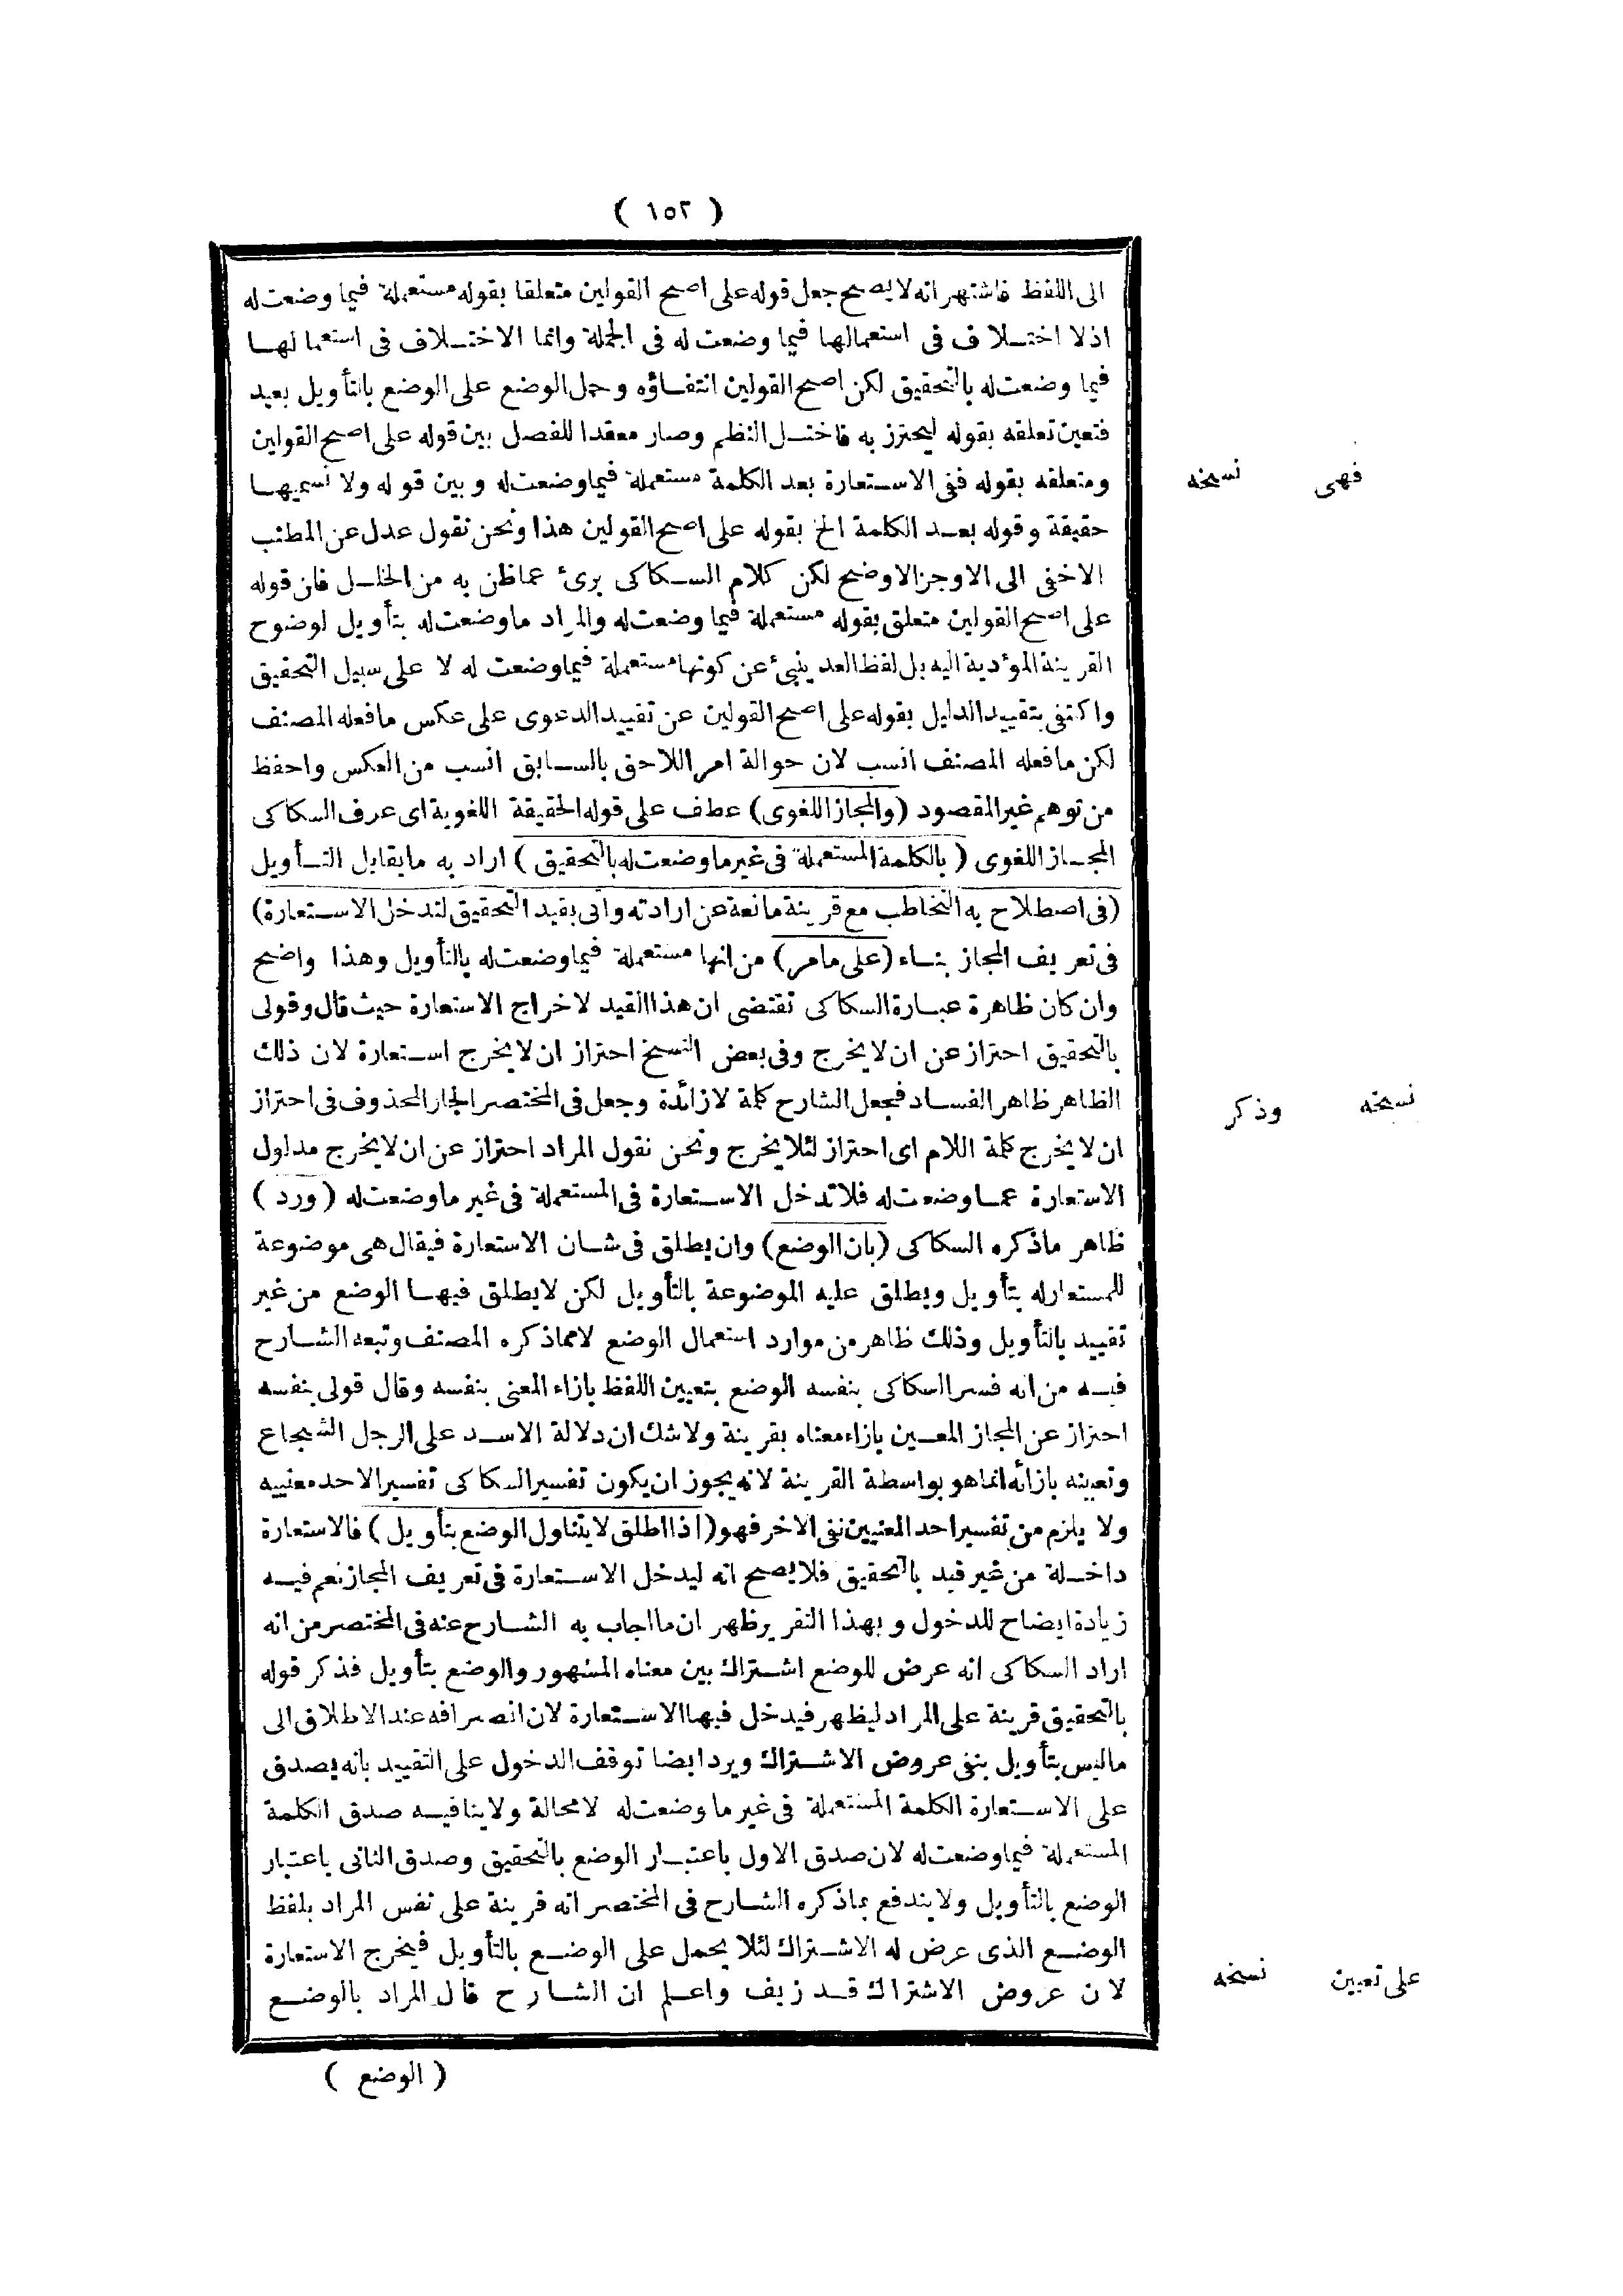 ( ١٥٢ )
الى اللفظ فاشتهر انه لا يصح جعل قوله على اصح القولين متعلقا بقوله مستعملة فيما وضعت له
اذلا اختلاف فى استعمالها فيما وضعت له فى الجملة وانما الاختلاف فى استعمالها
فيما وضعت له بالتحقيق لكن اصح القولين انتفاؤه وحمل الوضع على الوضع بالتأويل بعيد
فتعين تعلقه بقوله ليحترز به فاختل النظم وصار معقدا للفصل بين قوله على اصح القولين
ومتعلقه بقوله ففى الاستعارة بعد الكلمة مستعملة فيما وضعت له وبين قوله ولا نسميها
فهى نسخه
حقيقة وقوله بعد الكلمة الخ بقوله على اصح القولين هذا ونحن نقول عدل عن المطنب
الاخفى الى الاوجز الاوضح لكن كلام السكاكى برئ عماظن به من الخلل فان قوله
على اصح القولين متعلق بقوله مستعملة فيما وضعت له والمراد ماوضعت له بتأويل لوضوح
القرينة المؤدية اليه بل لفظ العد ينبئ عن كونها مستعملة فيما وضعت له لا على سبيل التحقيق
واكتفى بتقييد الدليل بقوله على اصح القولين عن تقييد الدعوى على عكس مافعله المصنف
لكن مافعله المصنف انسب لان حوالة امر اللاحق بالسابق انسب من العكس واحفظ
من توهم غير المقصود (والمجاز اللغوى) عطف على قوله الحقيقة اللغوية اى عرف السكاكى
المجاز اللغوى (بالكلمة المستعملة فى غير ماوضعت له بالتحقيق) اراد به مايقابل التأويل
(فى اصطلاح به التخاطب مع قرينة مانعة عن ارادته واتى بقيد التحقيق لتدخل الاستعارة)
فى تعريف المجاز بناء (على مامر) من انها مستعملة فيما وضعت له بالتأويل وهذا واضح
وان كان ظاهرة عبارة السكاكى تقتضى ان هذا القيد لاخراج الاستعارة حيث قال وقولى
بالتحقيق احتراز عن ان لا يخرج وفى بعض النسخ احتراز ان لا يخرج استعارة لان ذلك
الظاهر ظاهر الفساد فجعل الشارح كلمة لا زائدة وجعل فى المختصر الجار المحذوف فى احتراز
وذكر نسخه
ان لا يخرج كلمة اللام اى احتراز لئلا يخرج ونحن نقول المراد احتراز عن ان لا يخرج مدلول
الاستعارة عما وضعت له فلا تدخل الاستعارة فى المستعملة فى غير ماوضعت له (ورد)
ظاهر ماذكره السكاكى (بان الوضع) وان يطلق فى شان الاستعارة فيقال هى موضوعة
للمستعار له بتأويل ويطلق عليه الموضوعة بالتأويل لكن لا يطلق فيها الوضع من غير
تقييد بالتأويل وذلك ظاهر من موارد استعمال الوضع لا مماذكره المصنف وتبعه الشارح
فيه من انه فسر السكاكى بنفسه الوضع بتعيين اللفظ بازاء المعنى بنفسه وقال قولى بنفسه
احتراز عن المجاز المعين بازاء معناه بقرينة ولاشك ان دلالة الاسد على الرجل الشجاع
وتعينه بازائه انما هو بواسطة القرينة لانه يجوز ان يكون تفسير السكاكى تفسيرا لاحد معنييه
ولا يلزم من تفسير احد المعنيين نفى الاخر فهو (اذا اطلق لا يتناول الوضع بتأويل) فالاستعارة
داخلة من غير قيد بالتحقيق فلا يصح انه ليدخل الاستعارة فى تعريف المجاز نعم فيه
زيادة ايضاح للدخول وبهذا التقرير ظهر ان مااجاب به الشارح عنه فى المختصر من انه
اراد السكاكى انه عرض للوضع اشتراك بين معناه المشهور والوضع بتأويل فذكر قوله
بالتحقيق قرينة على المراد ليظهر فيدخل فيها الاستعارة لان انصرافه عند الاطلاق الى
ماليس بتأويل ينفى عروض الاشتراك ويرد ايضا توقف الدخول على التقييد بانه يصدق
على الاستعارة الكلمة المستعملة فى غير ماوضعت له لامحالة ولاينافيه صدق الكلمة
المستعملة فيما وضعت له لان صدق الاول باعتبار الوضع بالتحقيق وصدق الثانى باعتبار
الوضع بالتأويل ولا يندفع بماذكره الشارح فى المختصر انه قرينة على نفس المراد بلفظ
الوضع الذى عرض له الاشتراك لئلا يحمل على الوضع بالتأويل فيخرج الاستعارة
على تعيين نسخه
لان عروض الاشتراك قد زيف واعلم ان الشارح قال المراد بالوضع
( الوضع )